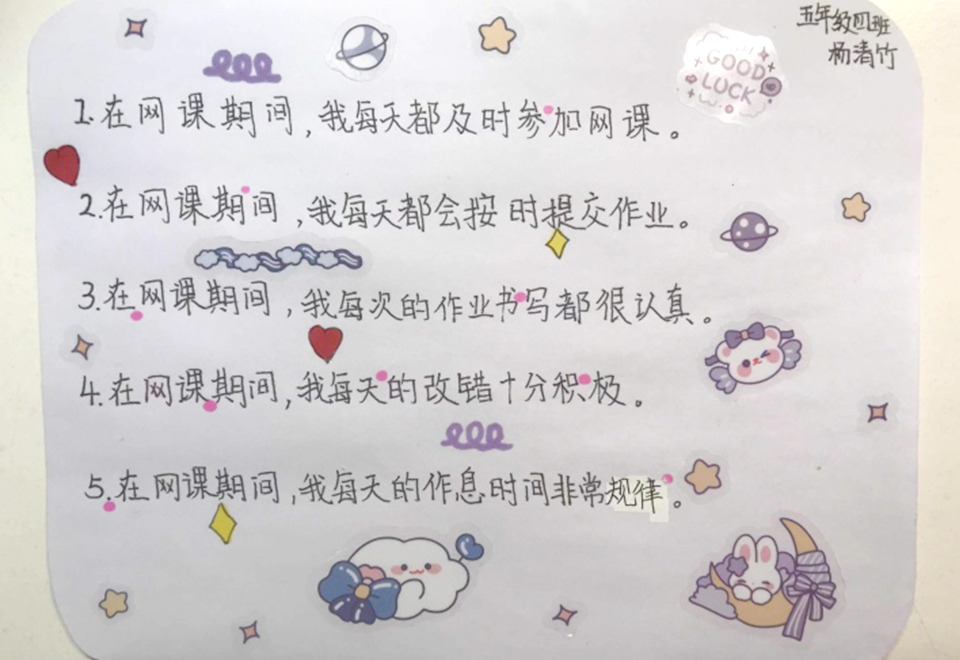 五年级四班
杨清竹
GOOD
LUCK
1.在网课期间,我每天都及时参加网课。
2.在网课期间,我每天都会按时提交作业。
3.在网课期间,我每次的作业书写都很认真。
4.在网课期间,我每天的改错十分积极。
5.在网课期间,我每天的作息时间非常规律。